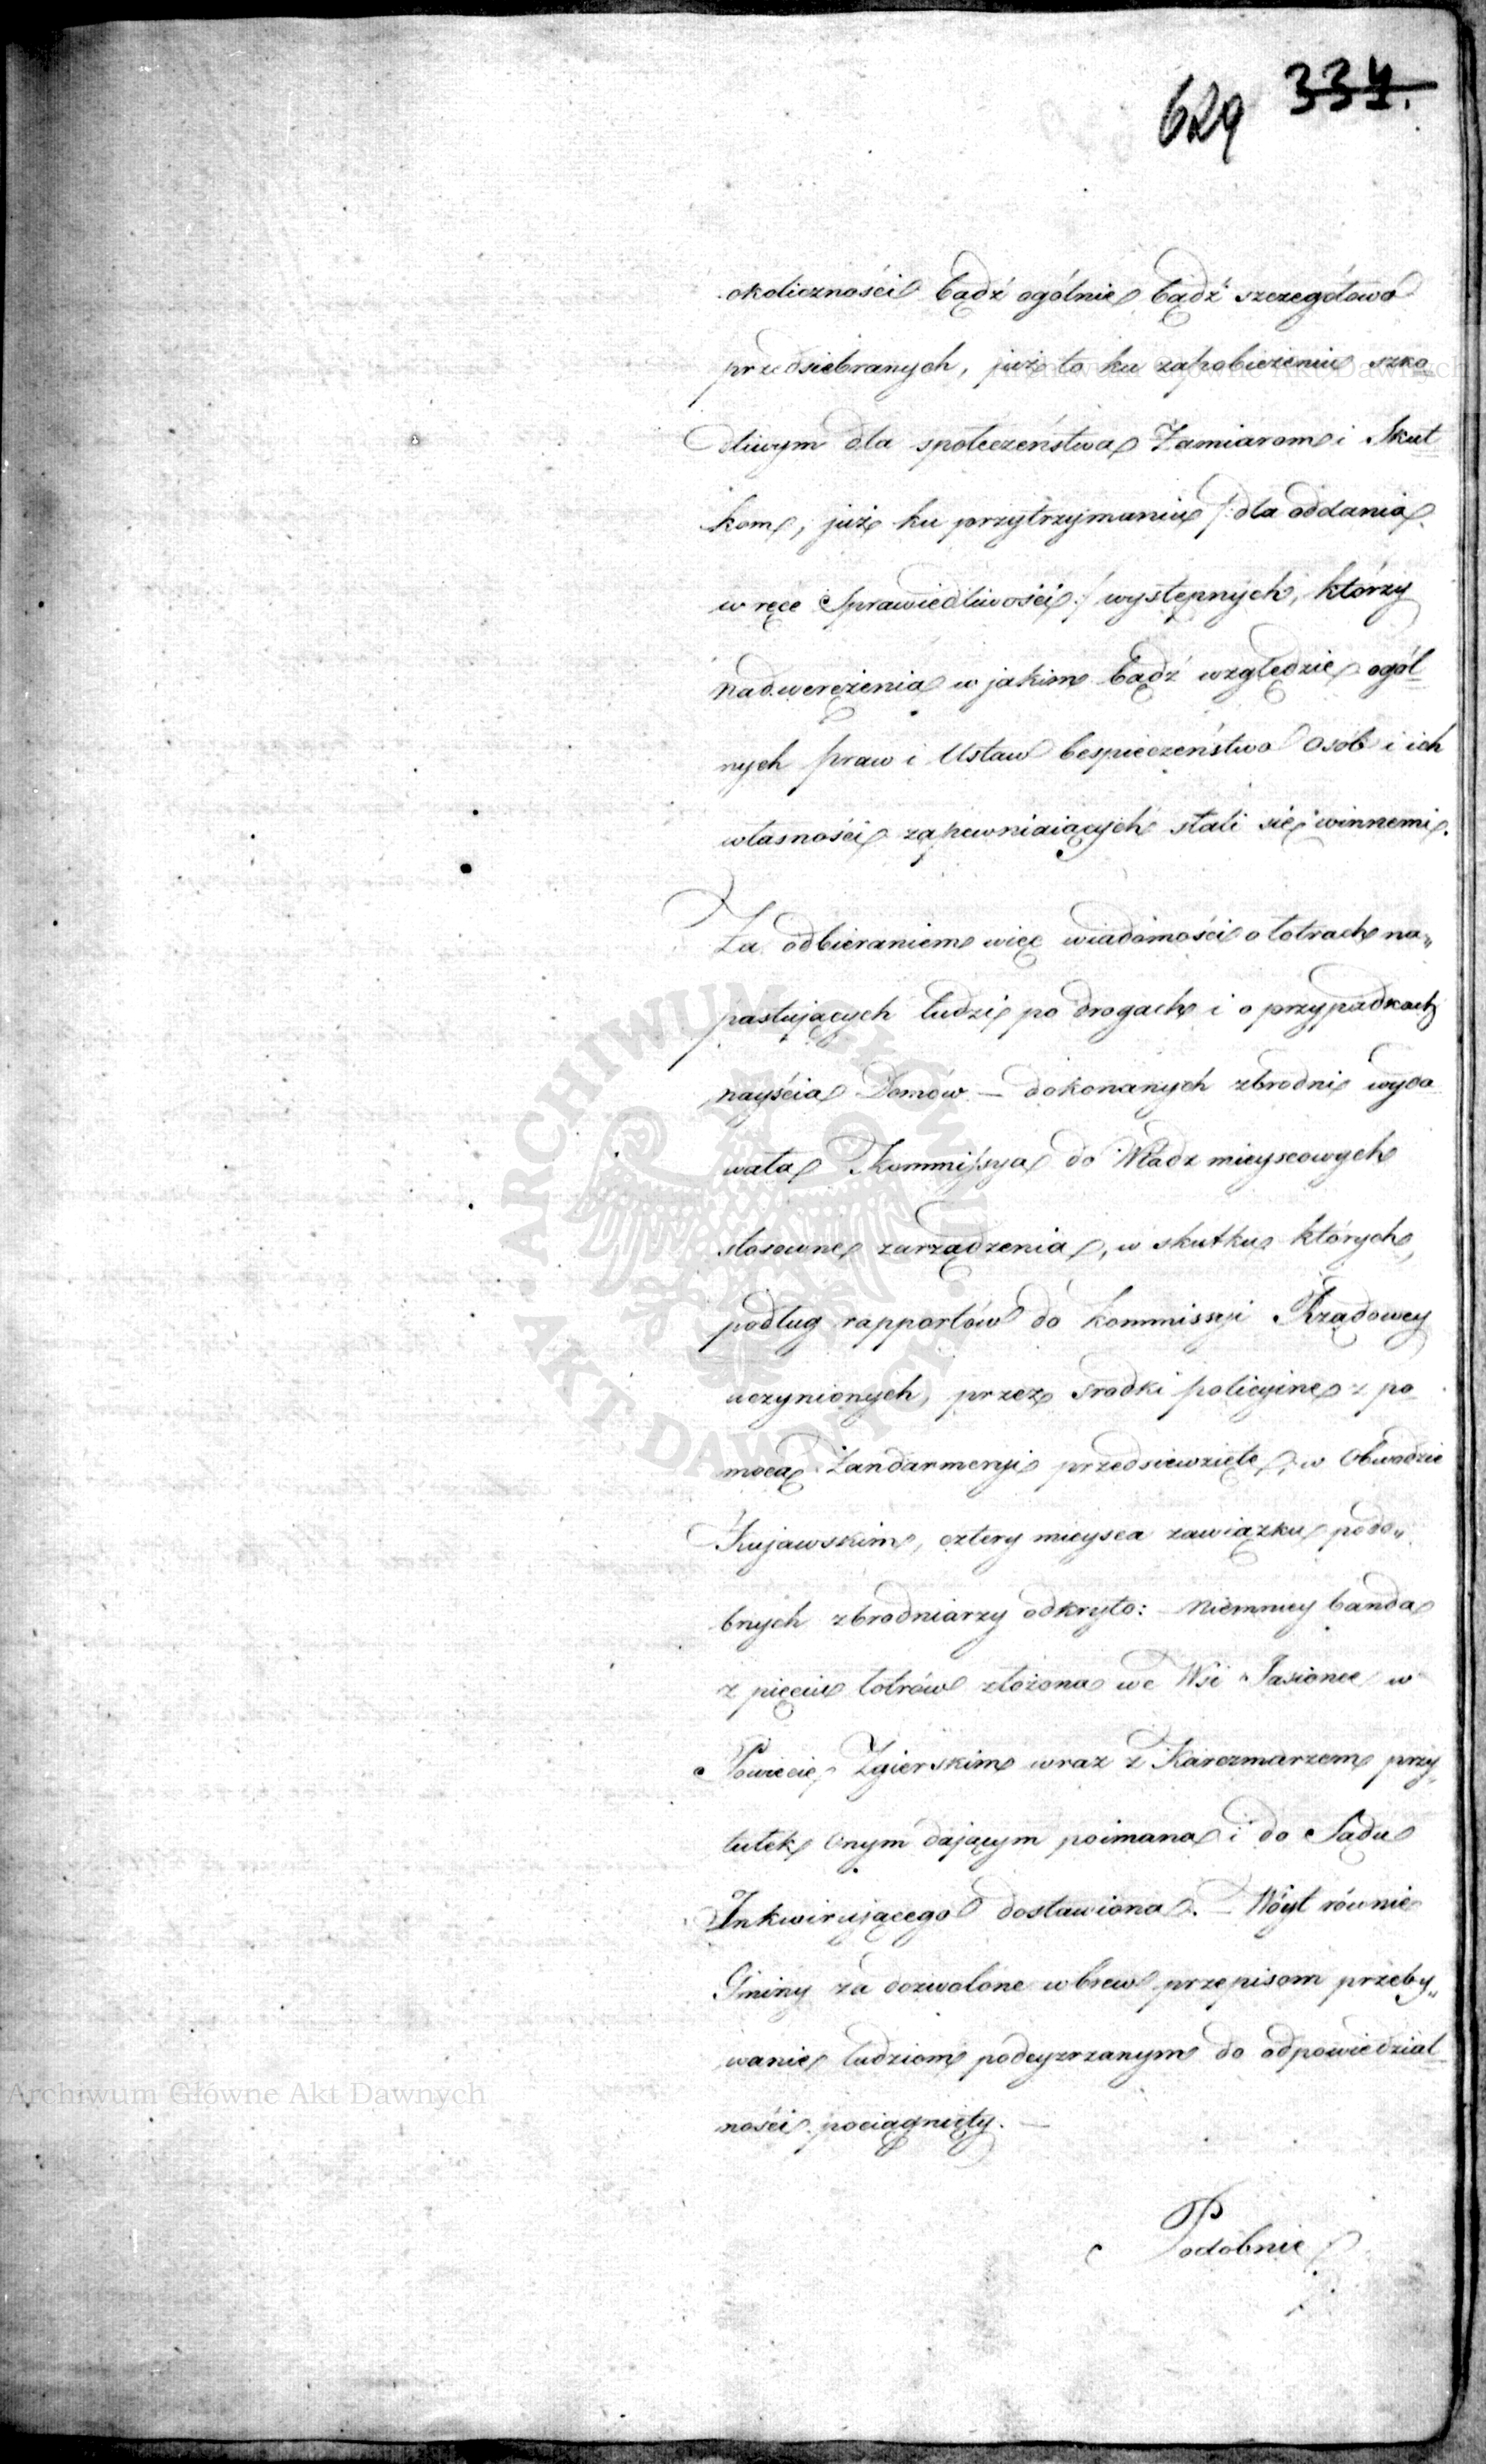 629 334.
okoliczności bądź ogólnie bądź szczegółowo
przedsiebranych, już to ku zapobieżeniu szko
dliwym dla społeczeństwa Zamiarom i Skut
kom, już ku przytrzymaniu /: dla oddania
w ręce Sprawiedliwości :/ występnych, którzy
nadwerężenia w jakim bądź względzie ogól
nych praw i Ustaw bespieczeństwo osób i ich
własności zapewniaiących stali się winnemi.
Za odbieraniem więc wiadomości o łotrach na„
pastujących ludzi po drogach i o przypadkach
nayścia Domów — dokonanych zbrodni wyda
wała Kommissya do Władz mieyscowych
stosowne zarządzenia, w skutku których,
podług rapportów do Kommissyi Rządowey
uczynionych, przez srodki policyine z po
mocą Żandarmeryi przedsiewzięte, w Obwodzie
Kujawskim, cztery mieysca zawiązku podo„
bnych zbrodniarzy odkryto: Niemniey banda
z pięciu łotrów złożona we Wsi Jasionce w
Powiecie Zgierskim wraz z Karczmarzem przy„
tułek onym dającym poimana i do Sądu
Inkwirującego dostawiona. — Wóyt równie
Gminy za dozwolone wbrew przepisom przeby„
wanie ludziom podeyzrzanym do odpowiedzial
ności pociągnięty. —
Podobnie
Archiwum Główne Akt Dawnych
Archiwum Główne Akt Dawnych
ARCHIWUM GŁÓWNE
AKT DAWNYCH